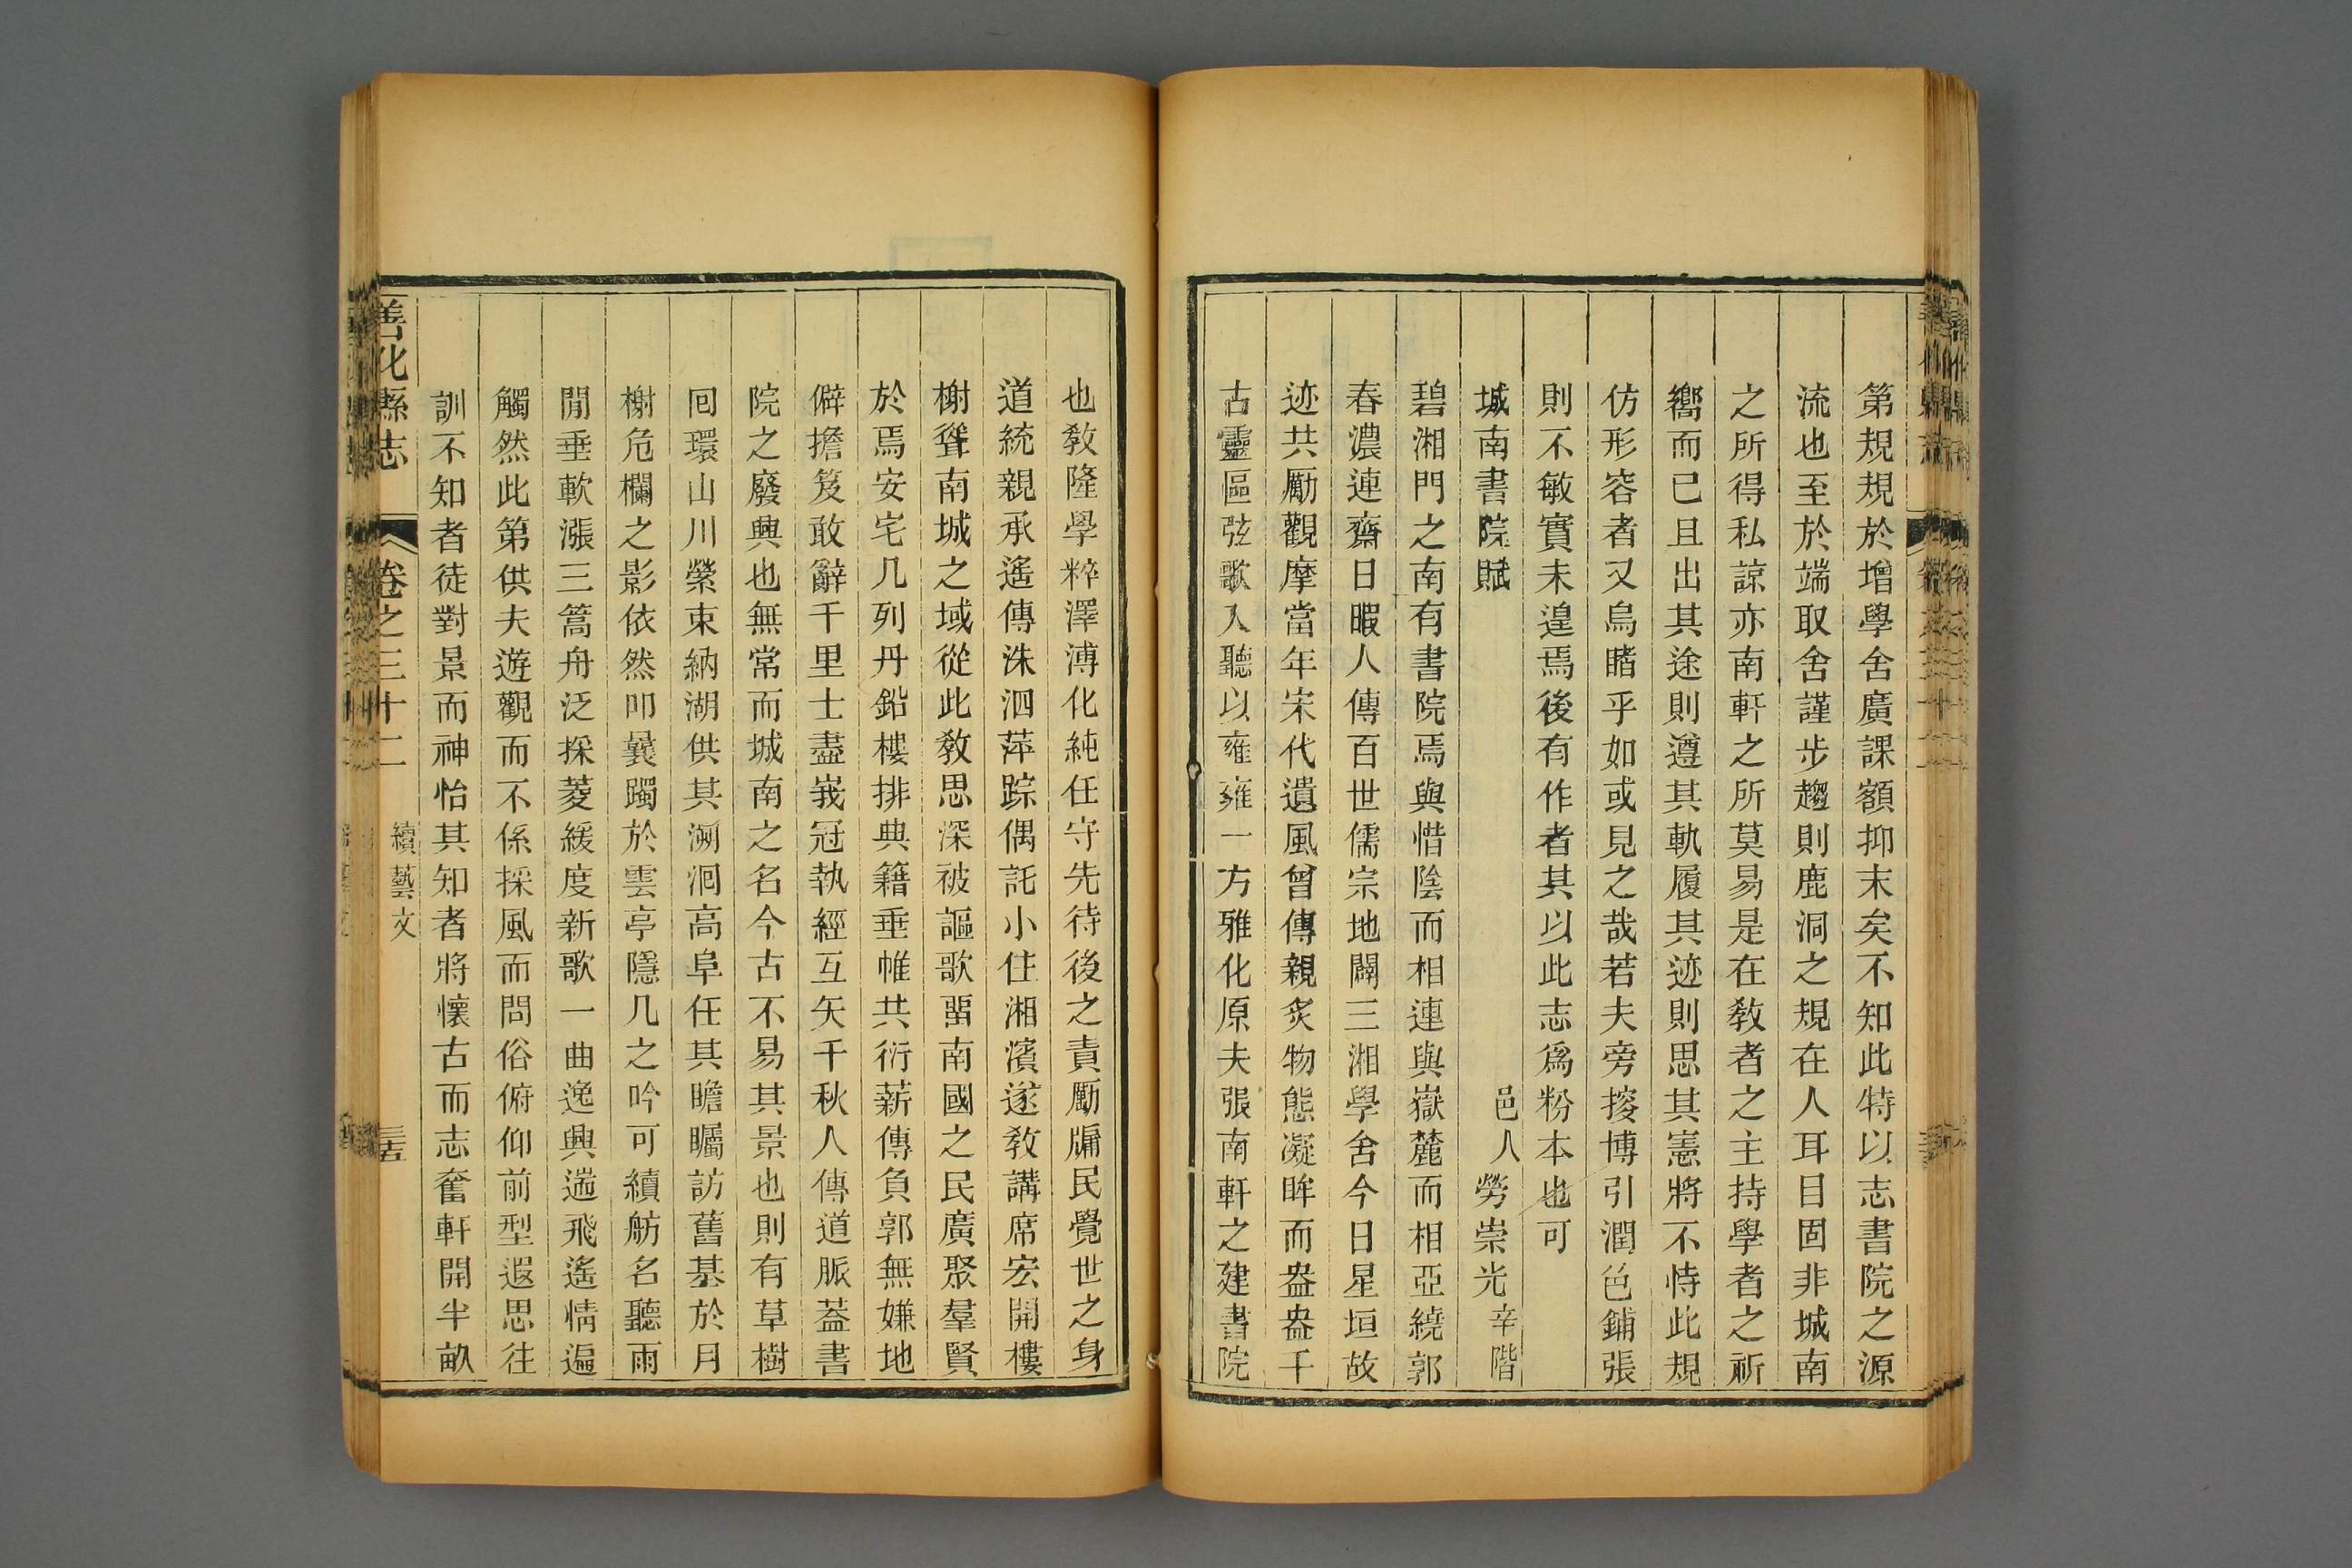 第規規於增學舍廣課額抑末矣不知此特以志書院之源
流也至於端取舍謹步趨則鹿洞之規在人耳目固非城南
之所得私諒亦南軒之所莫易是在教者之主持學者之祈
嚮而已且出其途則遵其軌履其迹則思其憲將不恃此規
仿形容者又烏睹乎如或見之哉若夫旁搜博引潤色鋪張
則不敏實未遑焉後有作者其以此志爲粉本也可
城南書院賦 邑人勞崇光辛階
碧湘門之南有書院焉與惜陰而相連與嶽麓而相亞繞郭
春濃連齋日暇人傳百世儒宗地闢三湘學舍今日星垣故
迹共勵觀摩當年宋代遺風曾傳親炙物態凝眸而盎盎千
古靈區弦歌入聽以雍雍一方雅化原夫張南軒之建書院
也教隆學粹澤溥化純任守先待後之責勵牖民覺世之身
道統親承遙傳洙泗萍踪偶託小住湘濱遂教講席宏開樓
榭聳南城之域從此教思深被謳歌畱南國之民廣聚羣賢
於焉安宅几列丹鉛樓排典籍垂帷共衍薪傳負郭無嫌地
僻擔笈敢辭千里士盡峩冠執經互矢千秋人傳道脈葢書
院之廢興也無常而城南之名今古不易其景也則有草樹
囘環山川縈束納湖供其溯洄高阜任其瞻矚訪舊基於月
榭危欄之影依然叩曩躅於雲亭隱几之吟可續舫名聽雨
閒垂軟漲三篙舟泛採菱緩度新歌一曲逸興遄飛遙情遍
觸然此第供夫遊觀而不係採風而問俗俯仰前型遐思往
訓不知者徒對景而神怡其知者將懷古而志奮軒開半畝
善化縣志 卷之三十二 續藝文 三五